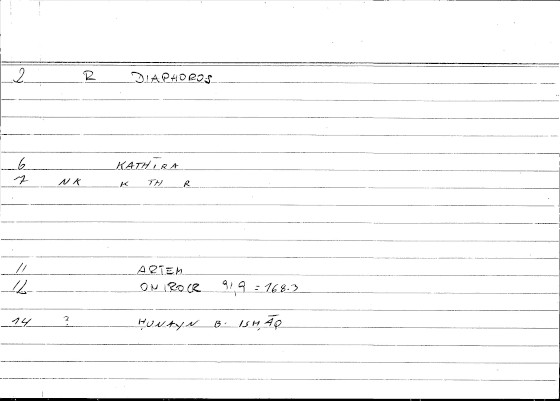 2 R DIAPHOROS
6 KATHĪRA
7 NK K TH R
11 ARTEM
12 ONIROCR 91,9 = 168.3
14 ? ḤUNAYN B. ISḤĀQ